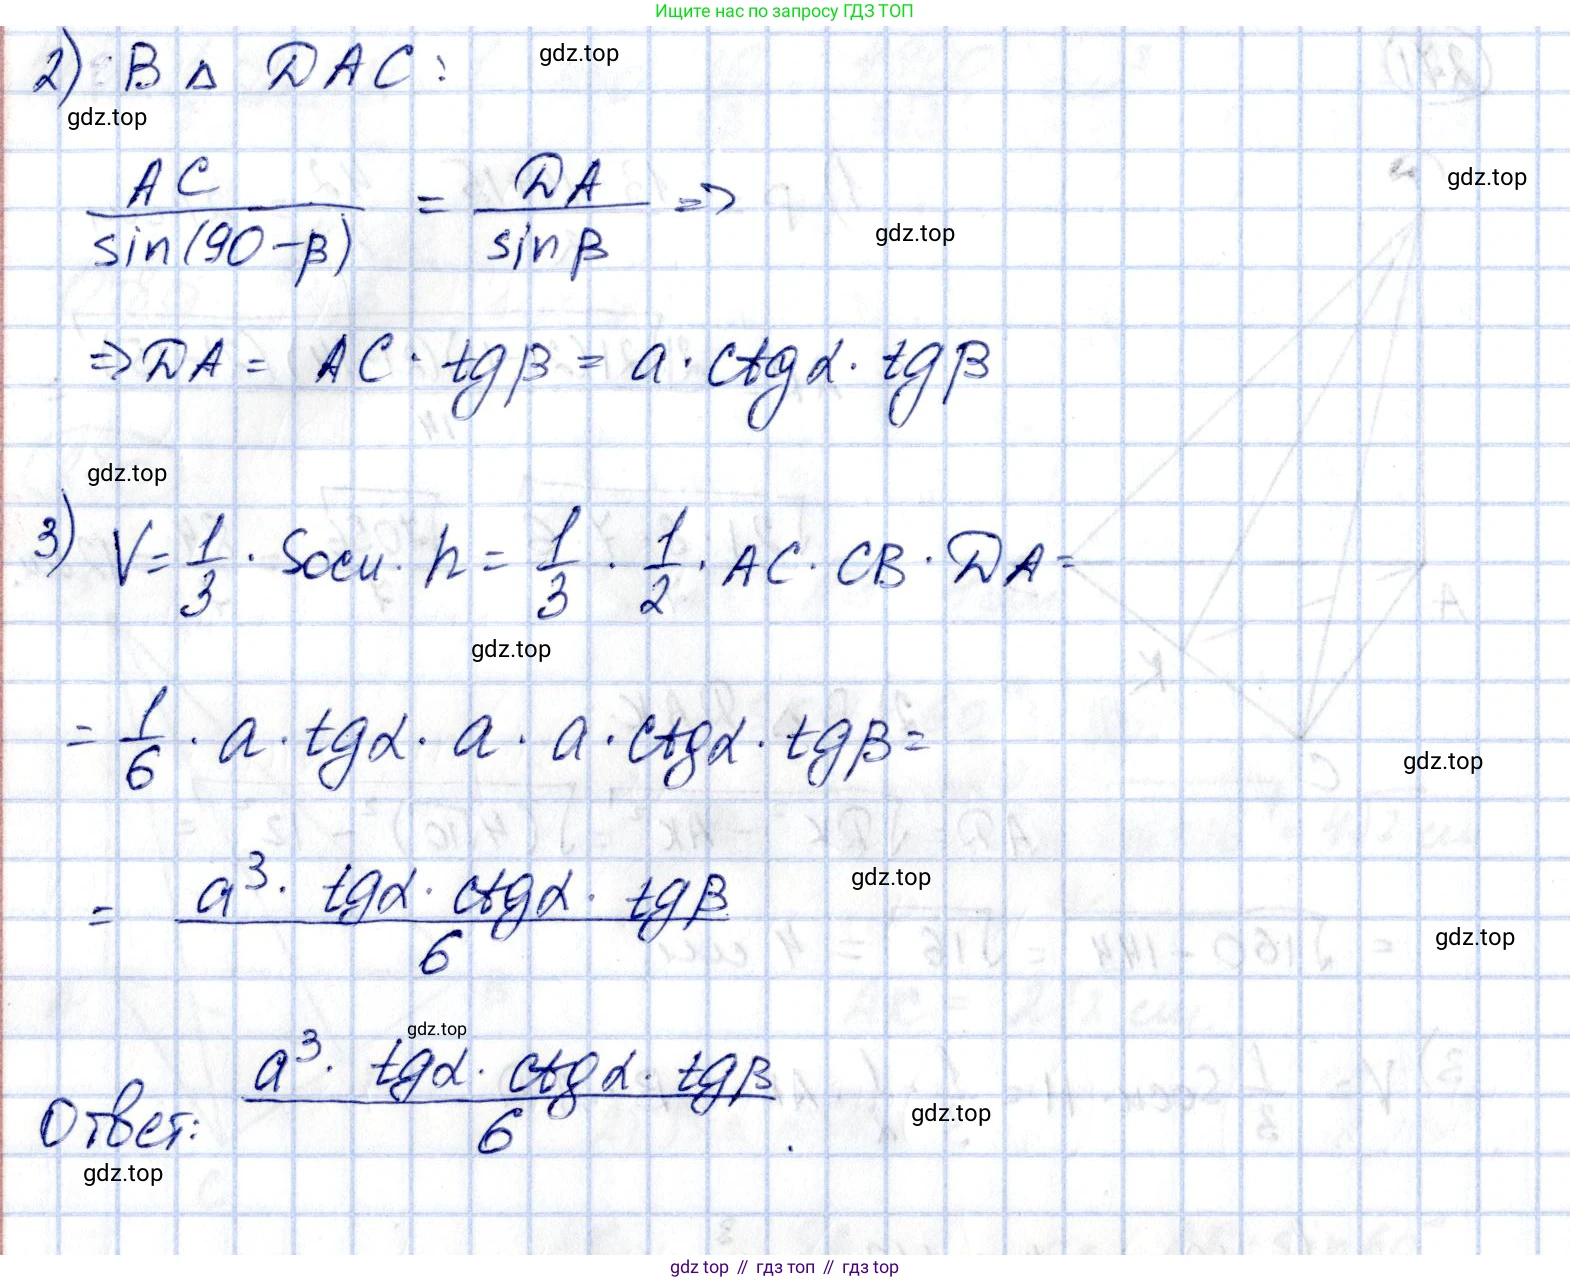 Ищите нас по запросу ГДЗ ТОП
2) В △ DAC:
gdz.top
gdz.top
AC / sin(90-β) = DA / sin β =>
gdz.top
gdz.top
=> DA = AC · tgβ = a · ctgα · tgβ
gdz.top
3) V = 1/3 · Sосн · h = 1/3 · 1/2 · AC · CB · DA =
gdz.top
= 1/6 · a · tgα · a · a · ctgα · tgβ =
gdz.top
= a³ · tgα · ctgα · tgβ / 6
gdz.top
gdz.top
gdz.top
Ответ: a³ · tgα · ctgα · tgβ / 6 .
gdz.top
gdz.top
gdz top // гдз топ // гдз top